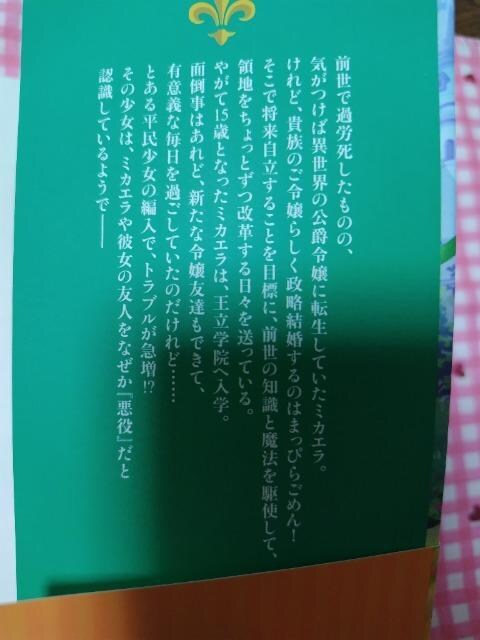 前世で過労死したものの、
気がつけば異世界の公爵令嬢に転生していたミカエラ。
けれど、貴族のご令嬢らしく政略結婚するのはまっぴらごめん！
そこで将来自立することを目標に、前世の知識と魔法を駆使して、
領地をちょっとずつ改革する日々を送っている。
やがて15歳となったミカエラは、王立学院へ入学。
面倒事はあれど、新たな令嬢友達もできて、
有意義な毎日を過ごしていたのだけれど……
とある平民少女の編入で、トラブルが急増!?
その少女は、ミカエラや彼女の友人をなぜか『悪役』だと
認識しているようで――